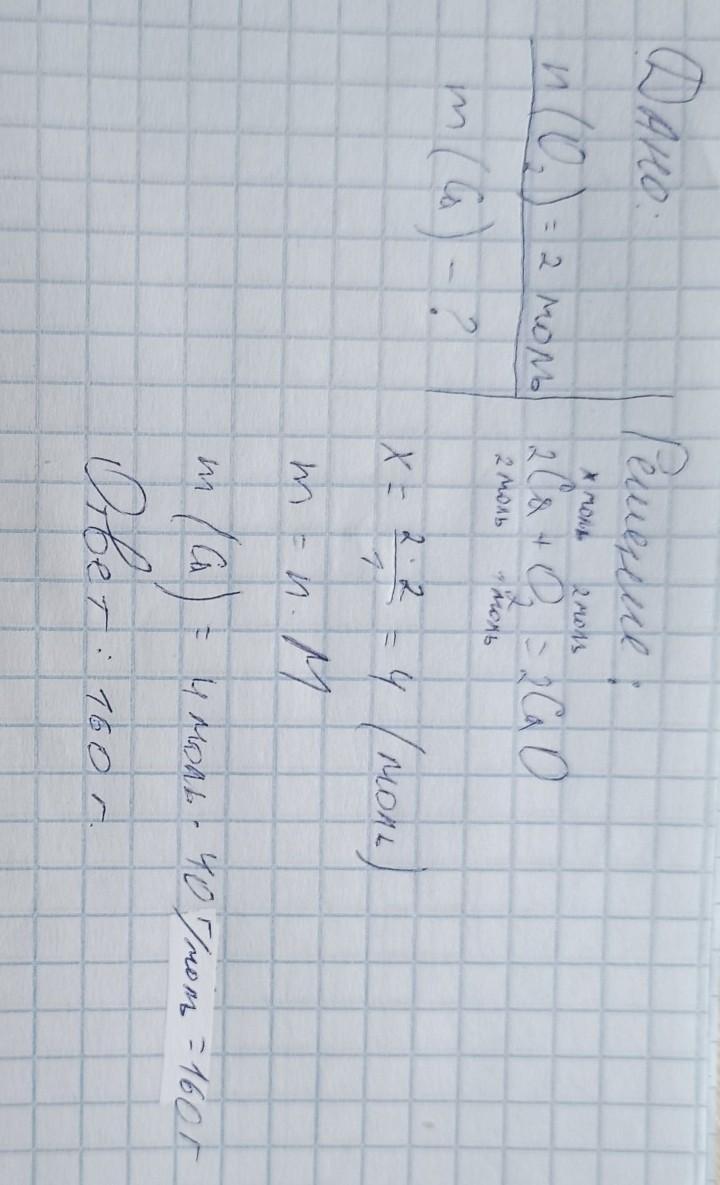 Дано:
n(O₂) = 2 моль
m(Ca) - ?
Решение:
x моль 2 моль
2Ca + O₂ = 2CaO
2 моль 1 моль
x = 2·2/1 = 4 (моль)
m = n · M
m(Ca) = 4 моль · 40 г/моль = 160 г
Ответ: 160 г.